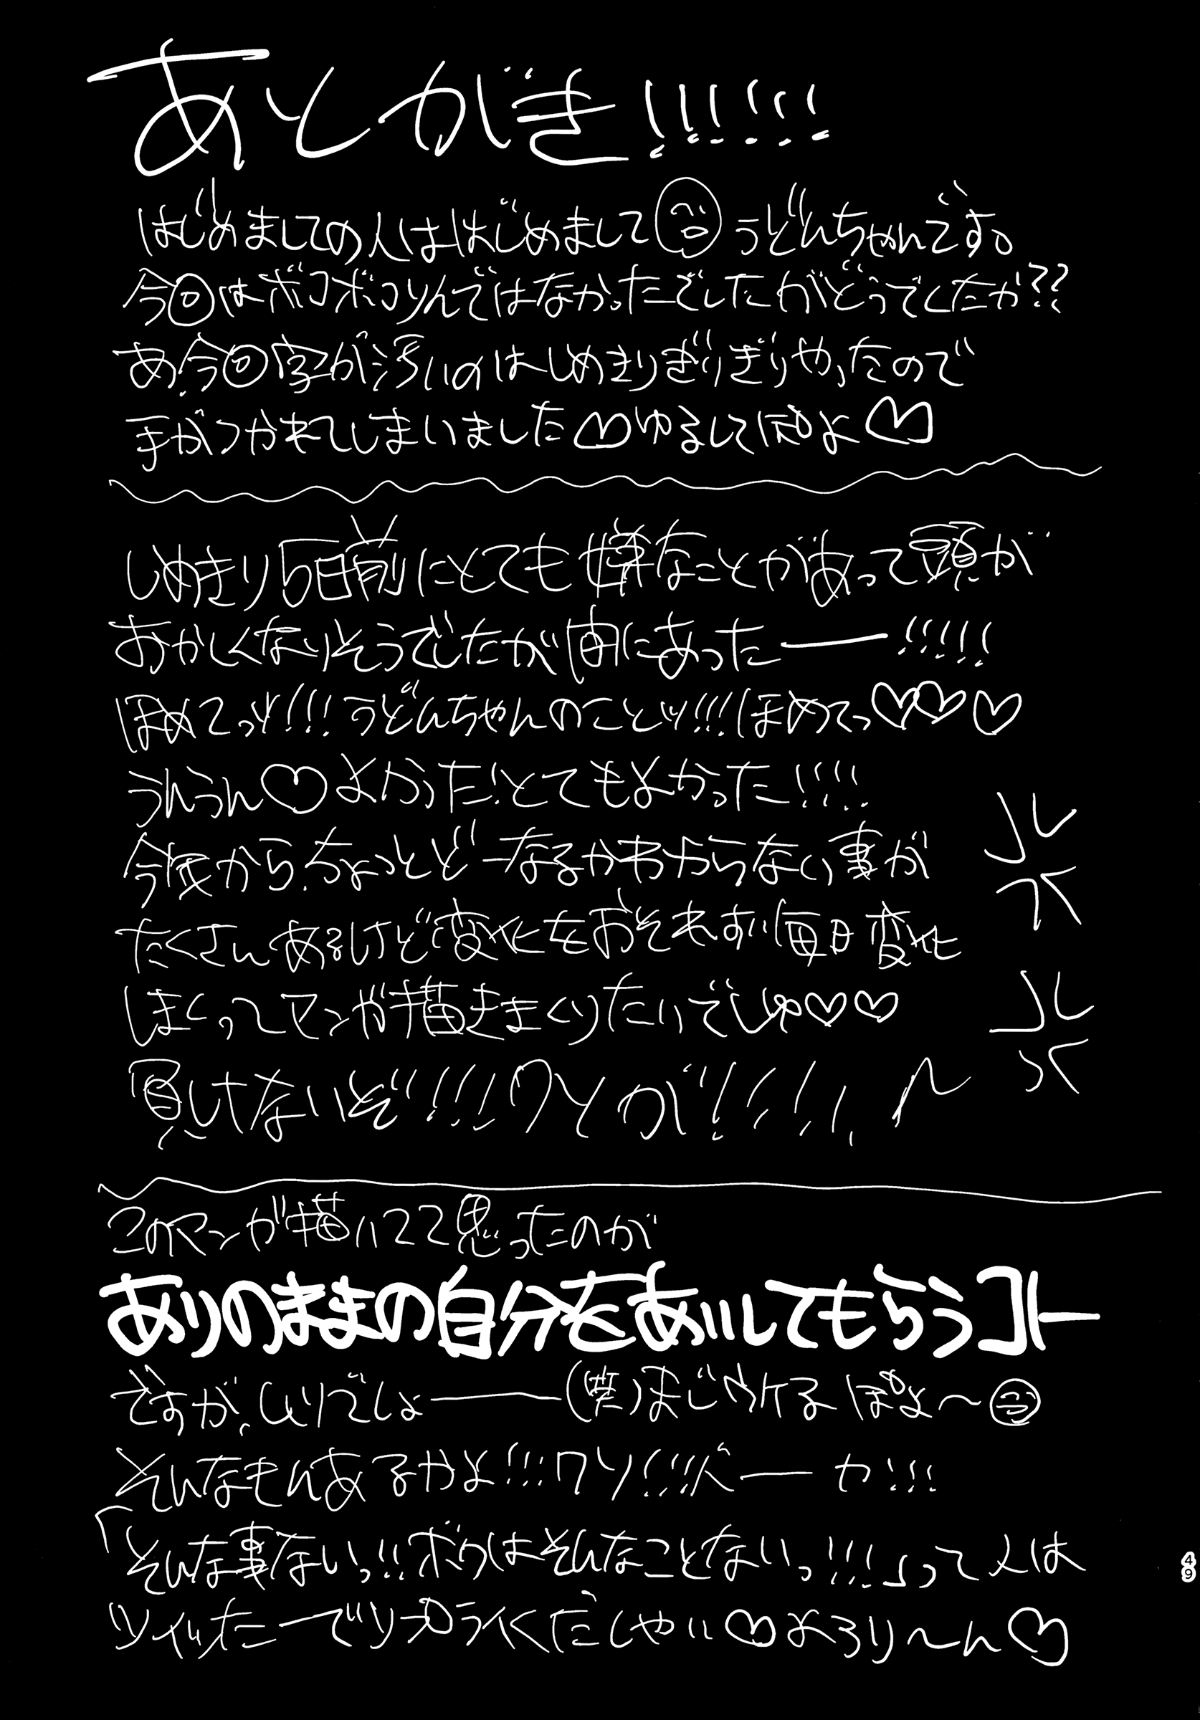 あとがき!!!!!!
はじめましての人ははじめまして うどんちゃんです。
今回はボコボコりんではなかったでしたがどうでしたか??
あ、今回字が汚いのはしめきりぎりぎりやったので
手がつかれてしまいました♡ゆるしてぽよ♡
しめきり5日前にとても嫌なことがあって頭が
おかしくなりそうでしたが間にあったー!!!!!
ほめてっ!!!うどんちゃんのことッ!!!ほめてっ♡♡♡
うんうん♡よかった!とてもよかった!!!!
今後から、ちょっとどーなるかわからない事が
たくさんあるけど変化をおそれずい毎日変化
しまくってマンガ描きまくりたいでしゅ♡♡
負けてないぞ!!!!クソが!!!!!
このマンガ描いてて思ったのが
ありのままの自分をあいしてもらうコトー
ですが、ムリでしょー(笑)まじウケるぽよ〜
そんなもんあるかよ!!!クソ!!!バーカ!!!
「そんな事ないっ!!ボクはそんなことないっ!!!」って人は
ツイッターでリプライくだしゃい♡よろり〜ん♡
49